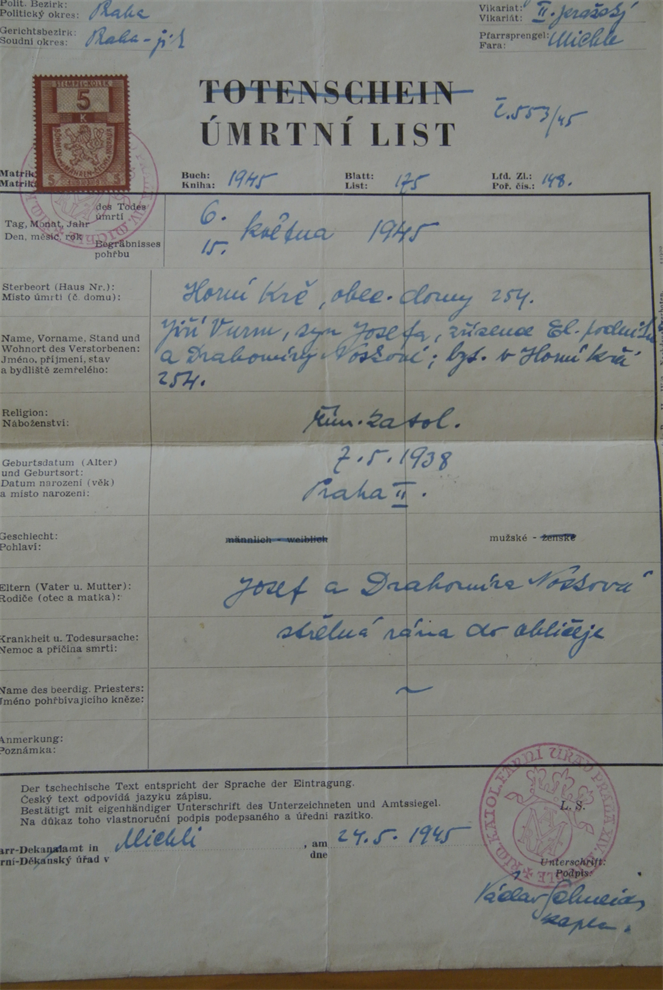 Polit. Bezirk:
Politický okres: Praha
Gerichtsbezirk:
Soudní okres: Praha-jih
Vikariat:
Vikariát: II. pražský
Pfarrsprengel:
Fara: Michle
TOTENSCHEIN
ÚMRTNÍ LIST
č.553/45
5
K
Matrik
Matrik
Buch:
Kniha: 1945
Blatt:
List: 175
Lfd. Zl.:
Poř. čís.: 148.
Tag, Monat, Jahr
Den, měsíc, rok
des Todes
úmrtí
Begräbnisses
pohřbu
6.
15. května 1945
Sterbeort (Haus Nr.):
Místo úmrtí (č. domu):
Horní Krč, obec. domy 254.
Name, Vorname, Stand und
Wohnort des Verstorbenen:
Jméno, příjmení, stav
a bydliště zemřelého:
Jiří Vurm, syn Josefa, zřízence El. podniků
a Drahomíry ; byt. v Horní Krči
254.
Religion:
Náboženství:
řím. katol.
Geburtsdatum (Alter)
und Geburtsort:
Datum narození (věk)
a místo narození:
7.5.1938
Praha II.
Geschlecht:
Pohlaví:
männlich - weiblich
mužské - ženské
Eltern (Vater u. Mutter):
Rodiče (otec a matka):
Josef a Drahomíra
Krankheit u. Todesursache:
Nemoc a příčina smrti:
střelná rána do obličeje
Name des beerdig. Priesters:
Jméno pohřbívajícího kněze:
~
Anmerkung:
Poznámka:
Der tschechische Text entspricht der Sprache der Eintragung.
Český text odpovídá jazyku zápisu.
Bestätigt mit eigenhändiger Unterschrift des Unterzeichneten und Amtssiegel.
Na důkaz toho vlastnoruční podpis podepsaného a úřední razítko.
arr-Dekanatamt in
rní-Děkanský úřad v
Michli
, am
dne
24.5.1945
ŘÍM. KATOL. FARNÍ ÚŘAD PRAHA XIV.
L. S.
Unterschrift:
Podpis:
Václav
kaplan.